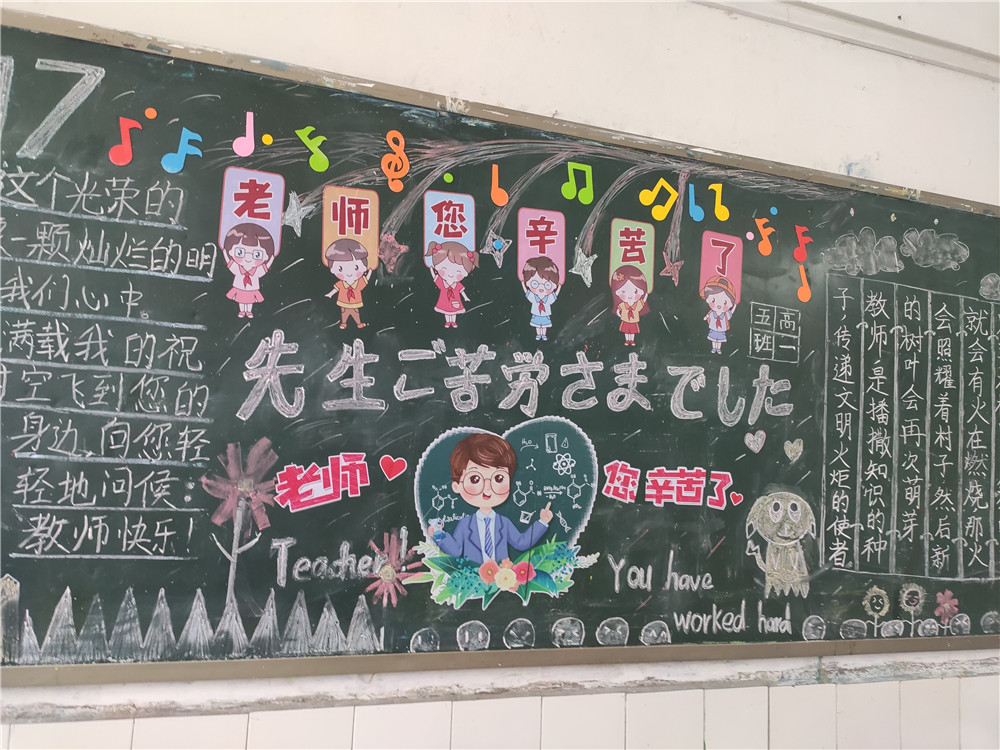 17
这个光荣的
一颗灿烂的明
我们心中。
满载我的祝
空飞到您的
身边,向您轻
轻地问候:
教师快乐!
老师您辛苦了
先生ご苦労さまでした
高二
五班
老师
您辛苦了
Teacher!
You have
worked hard
就会有火在燃烧那火
会照耀着村子然后新
的树叶会再次萌芽
教师是播撒知识的种
子传递文明火炬的使者